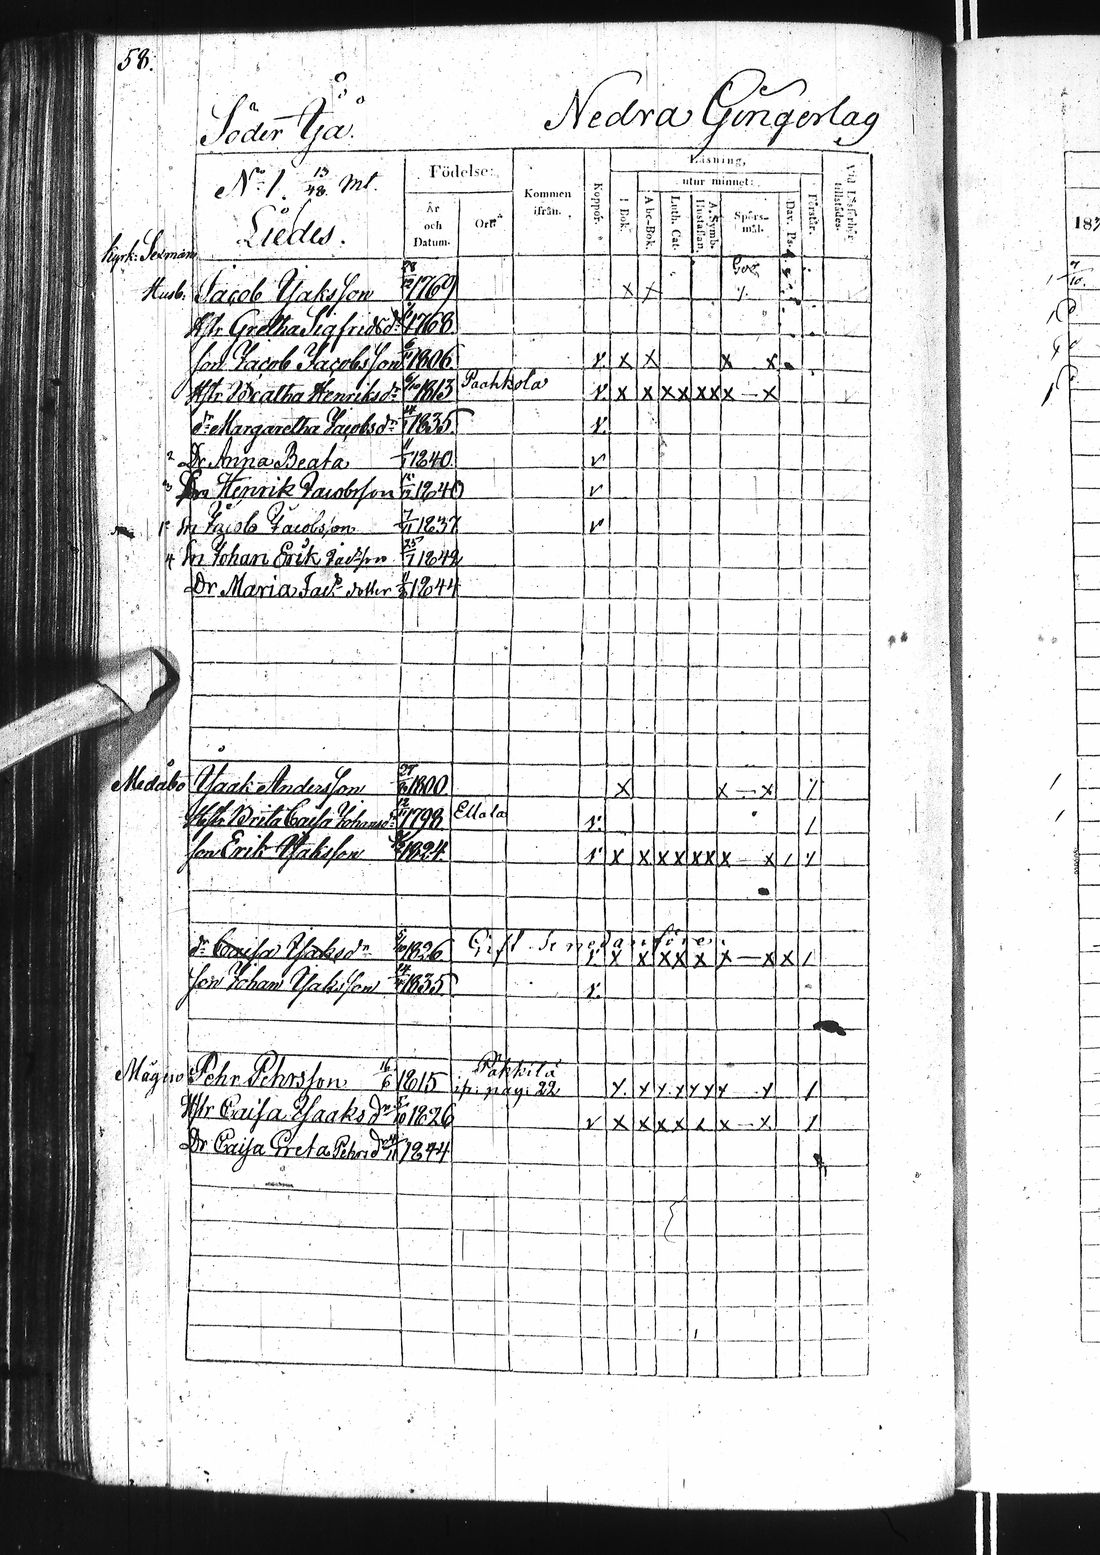 58.
Söder Yå.
Nedra Gingerlag
No 1. 13/48 mt.
Liedes.
Födelse:
År och Datum.
Ort
Kommen ifrån.
Koppor.
Läsning,
utur minnet:
I Bok.
Abc-Bok.
Luth. Cat.
A. Symb. Hustaflan.
Spörs-mål.
Dav. Ps.
Förstår.
Vid Läsförhör tillstädes.
183
Kyrk: Sexman
Husb. Jacob Ysaksson 1769 x x
Hstr Gretha Sigfridsdr 1768
son Jacob Jacobsson 1806 v. x x x x
Hstr Beatha Henriksdr 1813 Paahkola v. x x x x x x x — x
dr Margaretha Jacobsdr 1835 v.
2 Dr Anna Beata 1840 v
3 Henrik Jacobsson 1840 v
1 sn Jacob Jacobsson 7/11 1837 v
4 sn Johan Erik Jacsson 25/7 1842
Dr Maria Jac. dotter 1844
Medåbo Ysaak Andersson 1800 x x — x
Hstr Brita Caisa Johansdr 1798 Ellala v.
son Erik Ysaksson 1824 v x x x x x x x — x
dr Caisa Ysaksdr 1826 Gift se nedanföre. v x x x x x x — x x
son Johan Ysaksson 1835 v.
Mågen Pehr Pehrsson 16/6 1815 Pakkila
ip: pag: 22
Hstr Caisa Ysaaksdr 5/10 1826 v x x x x x x — x
Dr Caisa Greta Pehrsdr 1844